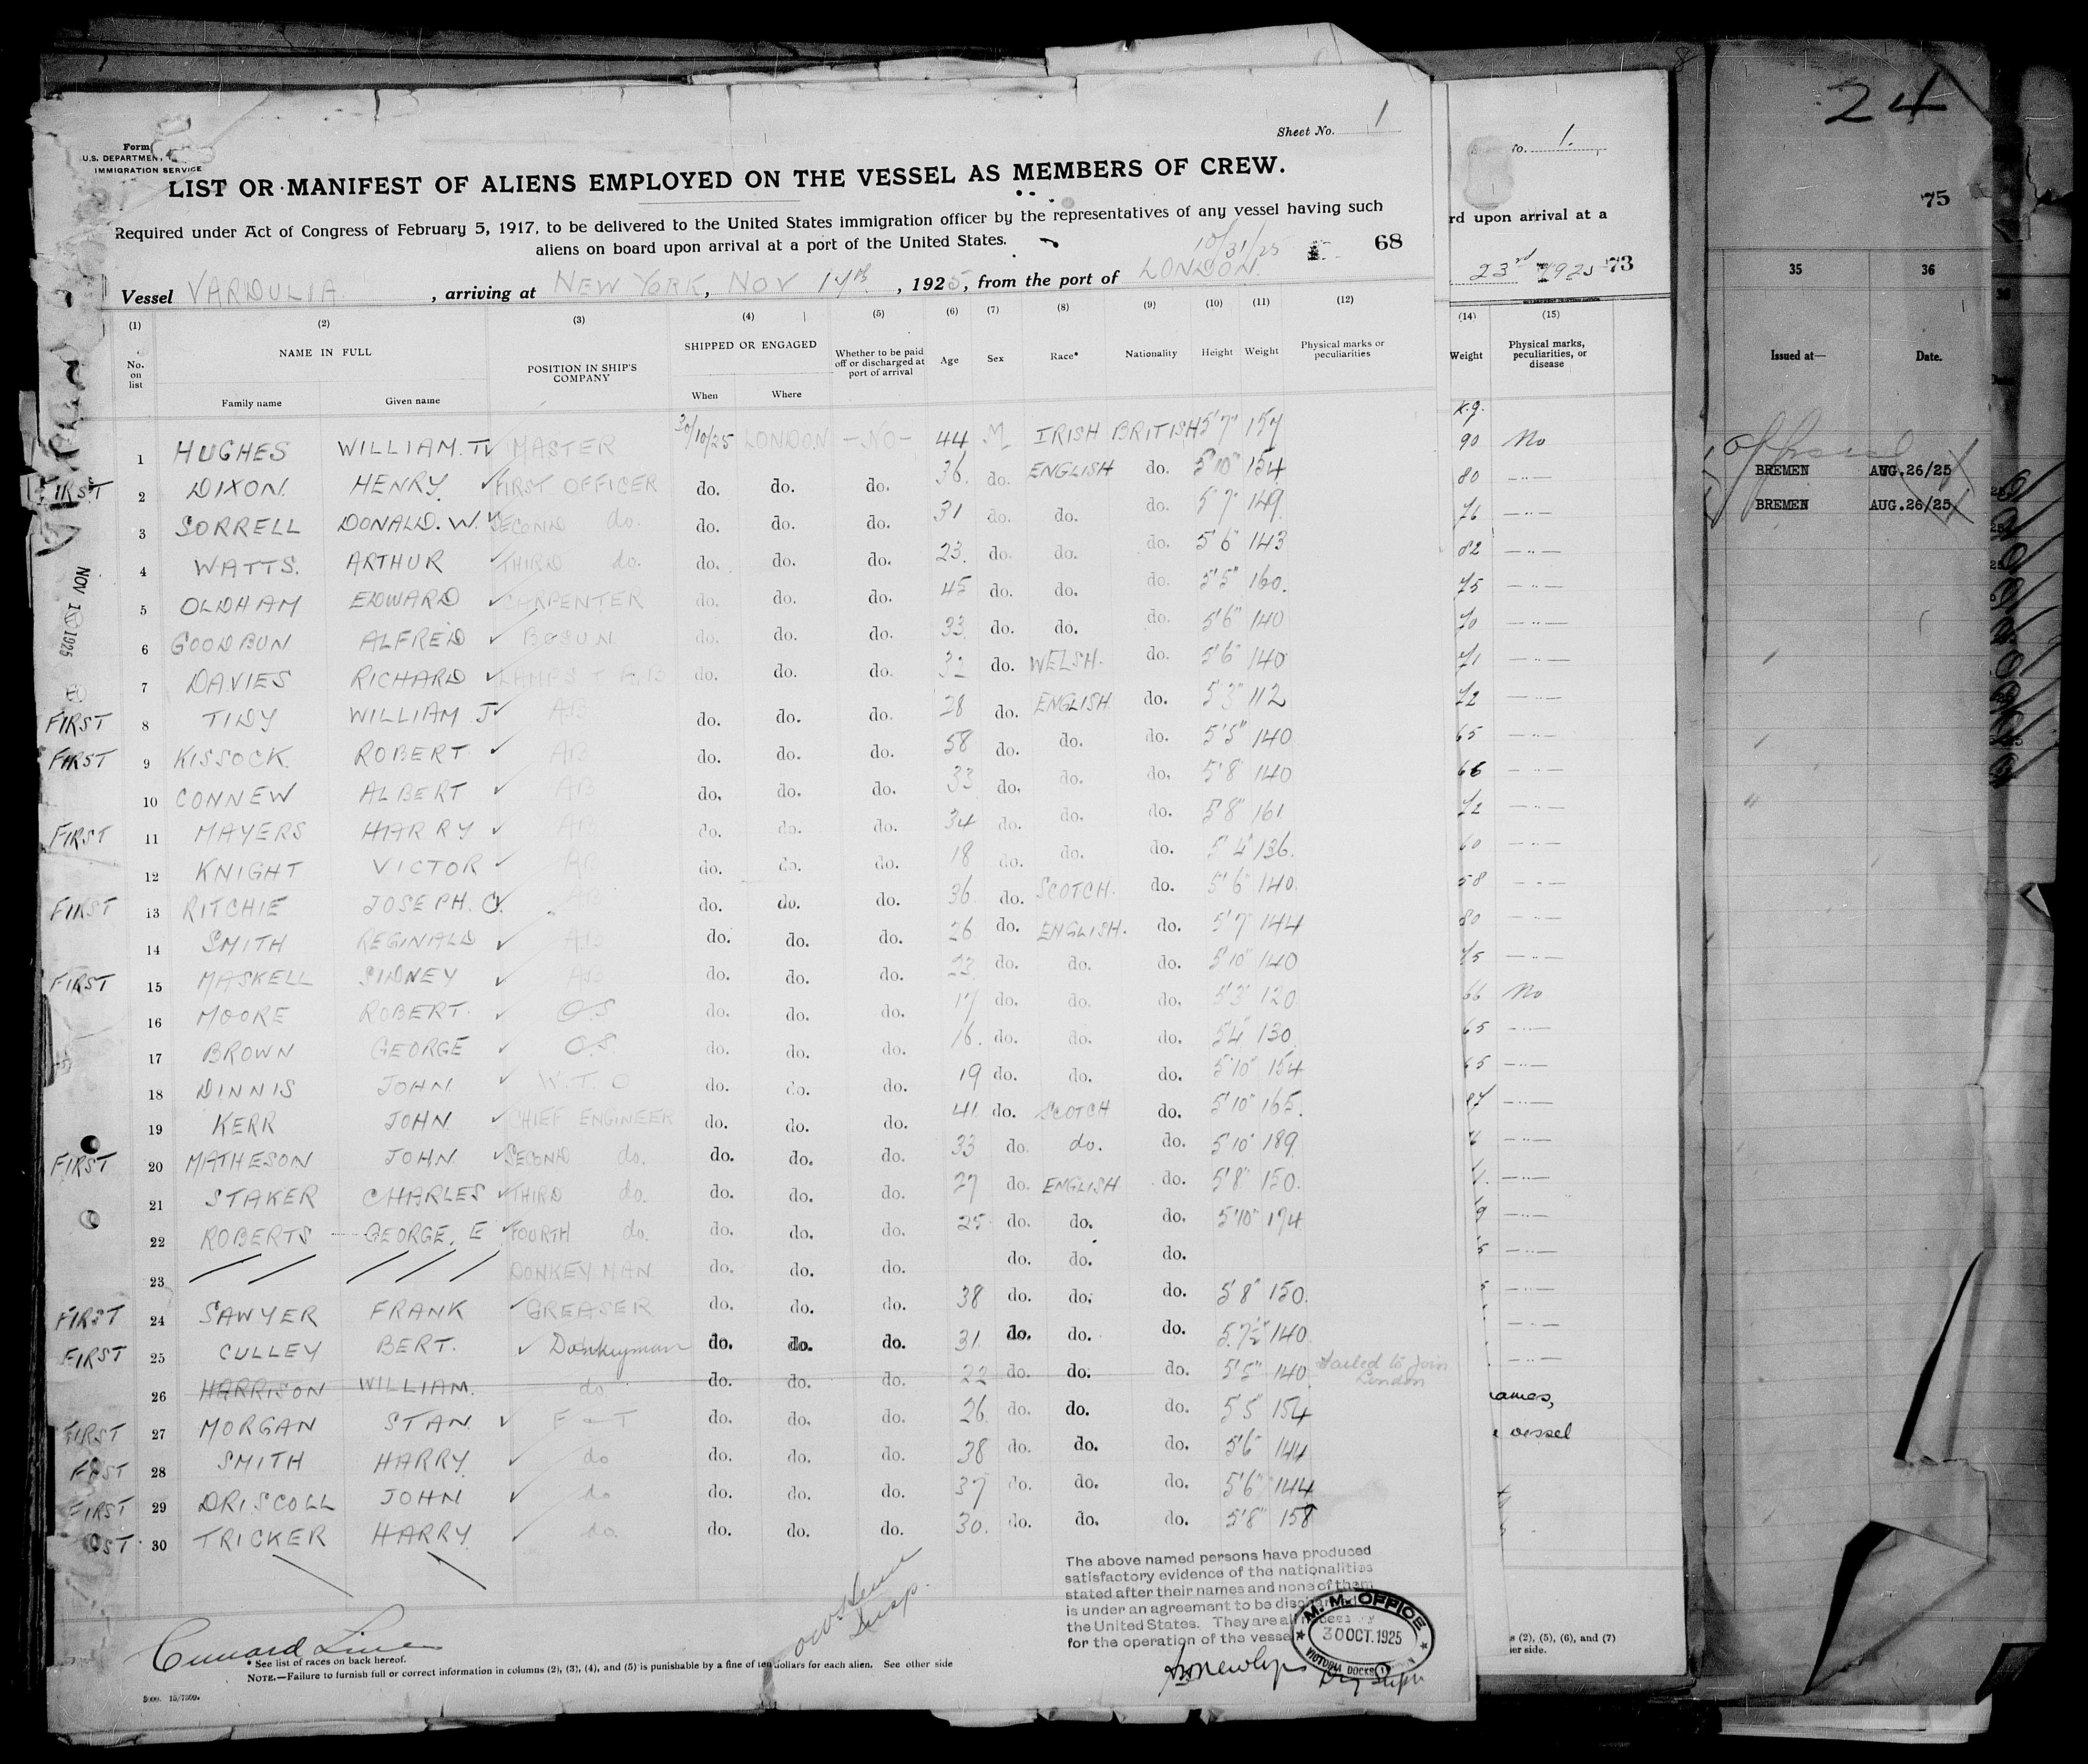 Sheet No. 1
Form
U.S. DEPARTMENT
IMMIGRATION SERVICE
LIST OR MANIFEST OF ALIENS EMPLOYED ON THE VESSEL AS MEMBERS OF CREW.
Required under Act of Congress of February 5, 1917, to be delivered to the United States immigration officer by the representatives of any vessel having such
aliens on board upon arrival at a port of the United States.
10/31/25
68
Vessel VARDULIA, arriving at NEW YORK, NOV 14th, 1925, from the port of LONDON.
(1) (2) (3) (4) (5) (6) (7) (8) (9) (10) (11) (12)
No. on list NAME IN FULL POSITION IN SHIP'S COMPANY SHIPPED OR ENGAGED Whether to be paid off or discharged at port of arrival Age Sex Race* Nationality Height Weight Physical marks or peculiarities
Family name Given name When Where
1 HUGHES WILLIAM. MASTER 30/10/25 LONDON -NO- 44 M IRISH BRITISH 5'7" 157
FIRST 2 DIXON. HENRY. FIRST OFFICER do. do. do. 36. do. ENGLISH do. 5'10" 154
3 SORRELL DONALD. W. SECOND do. do. do. do. 31 do. do. do. 5'7" 149.
4 WATTS. ARTHUR THIRD do. do. do. do. 23. do. do. do. 5'6" 143
5 OLDHAM EDWARD CARPENTER do. do. do. 45 do. do. do. 5'5" 160.
6 GOODBUN ALFRED BOSUN do. do. do. 33. do. do. do. 5'6" 140
7 DAVIES RICHARD LAMPS & A.B do. do. do. 32 do. WELSH. do. 5'6" 140
FIRST 8 TIDY WILLIAM J AB do. do. do. 28 do. ENGLISH. do. 5'3" 112
FIRST 9 KISSOCK. ROBERT AB do. do. do. 58 do. do. do. 5'5" 140
10 CONNEW ALBERT AB do. do. do. 33 do. do. do. 5'8" 140
FIRST 11 MAYERS HARRY AB do. do. do. 34 do. do. do. 5'8" 161
12 KNIGHT VICTOR AB do. do. do. 18 do. do. do. 5'4" 136.
FIRST 13 RITCHIE JOSEPH. C. AB do. do. do. 36. do. SCOTCH. do. 5'6" 140.
14 SMITH REGINALD AB do. do. do. 26 do. ENGLISH. do. 5'7" 144
FIRST 15 MASKELL SIDNEY AB do. do. do. 23. do. do. do. 5'10" 140
16 MOORE ROBERT. O.S do. do. do. 17 do. do. do. 5'3" 120
17 BROWN GEORGE O.S. do. do. do. 16. do. do. do. 5'4" 130
18 DINNIS JOHN W.T.O do. do. do. 19 do. do. do. 5'10" 154
19 KERR JOHN. CHIEF ENGINEER do. do. do. 41. do. SCOTCH do. 5'10" 165.
FIRST 20 MATHESON JOHN. SECOND do. do. do. do. 33 do. do. do. 5'10" 189.
21 STAKER CHARLES THIRD do. do. do. do. 27 do. ENGLISH do. 5'8" 150.
22 ROBERTS GEORGE. E FOURTH do. do. do. do. 25 do. do. do. 5'10" 174
23 DONKEYMAN do. do. do. do. do. do.
FIRST 24 SAWYER FRANK GREASER do. do. do. 38 do. do. do. 5'8" 150.
FIRST 25 CULLEY BERT. Donkeyman do. do. do. 31. do. do. do. 5.7½" 140
26 HARRISON WILLIAM. do do. do. do. 22 do. do. do. 5'5" 140 Failed to Join London
FIRST 27 MORGAN STAN. F & T do. do. do. 26. do. do. do. 5'5" 154
FIRST 28 SMITH HARRY. do do. do. do. 38 do. do. do. 5'6" 144
FIRST 29 DRISCOLL JOHN do do. do. do. 37 do. do. do. 5'6" 144
30 TRICKER HARRY. do. do. do. do. 30. do. do. do. 5'8" 158
NOV 1925
The above named persons have produced
satisfactory evidence of the nationalities
stated after their names and none of them
is under an agreement to be discharged
the United States. They are all
for the operation of the vessel
M. M. OFFICE
30 OCT. 1925
VICTORIA DOCKS
Insp.
Cunard Line
* See list of races on back hereof.
NOTE.—Failure to furnish full or correct information in columns (2), (3), (4), and (5) is punishable by a fine of ten dollars for each alien. See other side
1.
rd upon arrival at a
23rd 1925 73
(14) (15)
Weight Physical marks, peculiarities, or disease
K.g.
90 No
80
76
82
75
70
71
72
65
66
72
60
58
80
75
66 No
65
65
ames,
vessel
(2), (5), (6), and (7)
er side.
24
75
35 36
Issued at— Date.
BREMEN AUG.26/25
BREMEN AUG.26/25